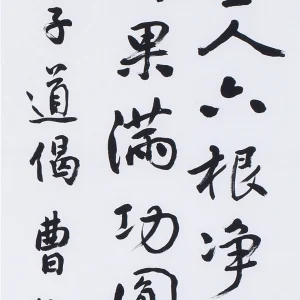 人六根净
果满功圆
子道偈曹